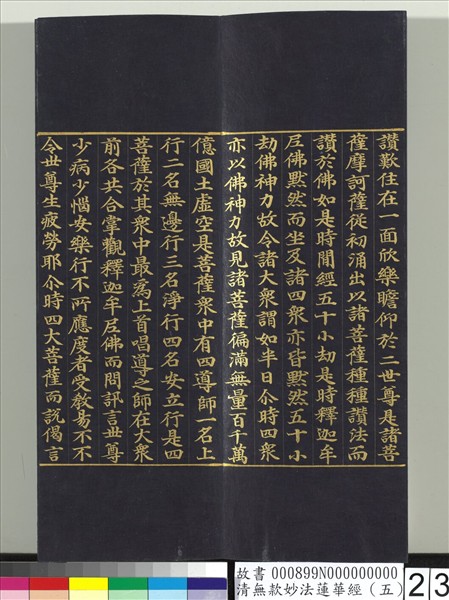 讚歎住在一面欣樂瞻仰於二世尊是諸菩
薩摩訶薩從初涌出以諸菩薩種種讚法而
讚於佛如是時間經五十小劫是時釋迦牟
尼佛默然而坐及諸四衆亦皆默然五十小
劫佛神力故令諸大衆謂如半日尒時四衆
亦以佛神力故見諸菩薩徧滿無量百千萬
億國土虛空是菩薩衆中有四導師一名上
行二名無邊行三名淨行四名安立行是四
菩薩於其衆中最爲上首唱導之師在大衆
前各共合掌觀釋迦牟尼佛而問訊言世尊
少病少惱安樂行不所應度者受教易不不
令世尊生疲勞耶尒時四大菩薩而說偈言
故書 000899N000000000
清無款妙法蓮華經（五）
23